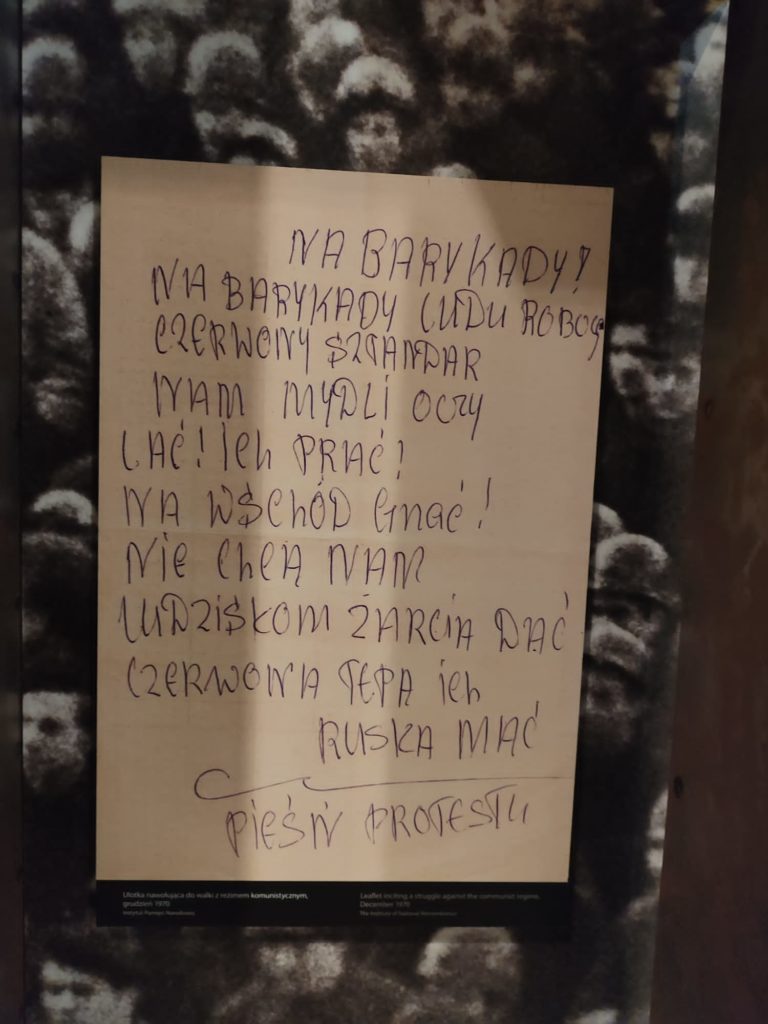 NA BARYKADY!
NA BARYKADY LUDU ROBOCZY
CZERWONY SZTANDAR
NAM MYDLI OCZY
LAĆ! ICH PRAĆ!
NA WSCHÓD GNAĆ!
NIE CHCĄ NAM
LUDZISKOM ŻARCIA DAĆ
CZERWONA TĘPĄ ICH
RUSKA MAĆ
PIEŚŃ PROTESTU
Ulotka nawołująca do walki z reżimem komunistycznym,
grudzień 1970
Instytut Pamięci Narodowej
Leaflet inciting a struggle against the communist regime,
December 1970
The Institute of National Remembrance